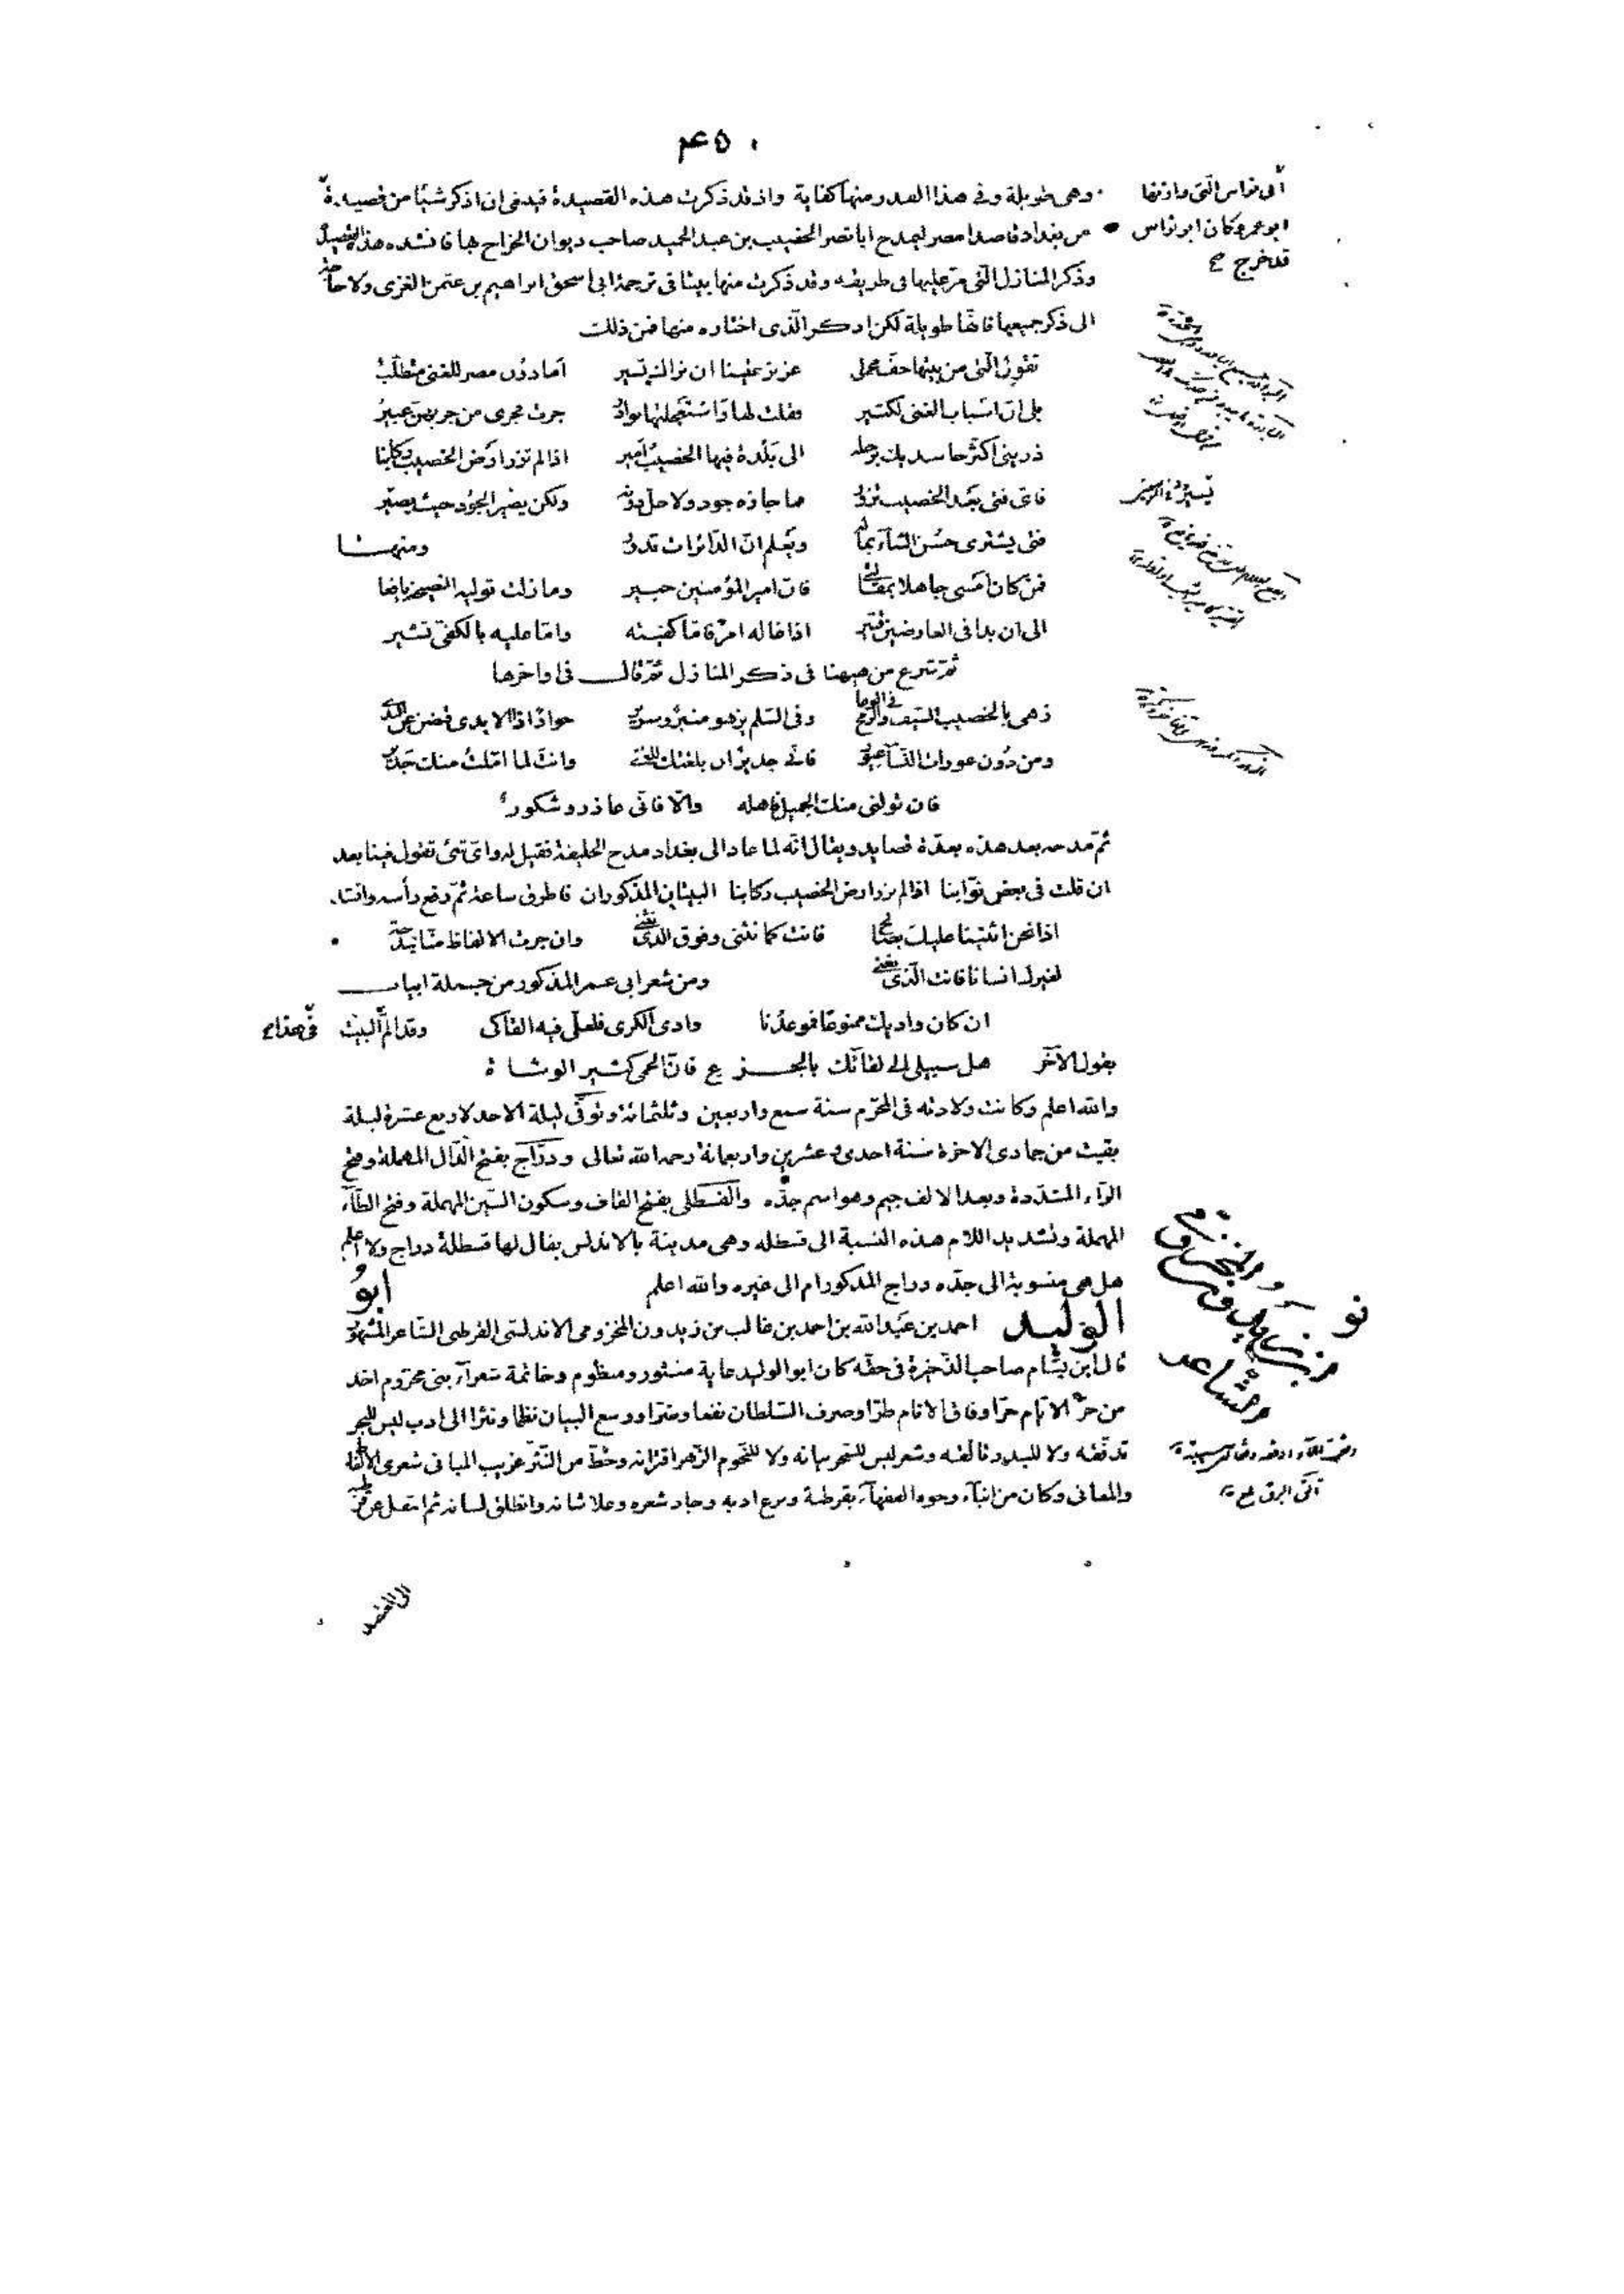 ٤٥٠
وهى طويلة وفى هذا القدر منها كفاية واذ قد ذكرت هذه القصيدة فينبغى ان اذكر شيئا من قصيدة
ابى نواس التى وازنها
ابو عمر وكان ابو نواس
قد خرج صح
من بغداد قاصدا مصر ليمدح ابا نصر الخصيب بن عبد الحميد صاحب ديوان الخراج بها فانشده هذه القصيدة
وذكر المنازل التى مر عليها فى طريقه وقد ذكرت منها بيتا فى ترجمة ابى اسحق ابراهيم بن عثمن الغزى ولا حاجة
الى ذكر جميعها فانها طويلة لكن اذكر الذى اختاره منها فمن ذلك
تقول التى من بيتها خف محملى عزيز علينا ان نراك تسير اما دون مصر للغنى متطلب
بلى ان اسباب الغنى لكثير فقلت لها واستعجلتها بوادر جرت فجرى من جريهن عبير
ذرينى اكثر حاسديك برحلة الى بلدة فيها الخصيب امير اذا لم تزر ارض الخصيب ركابنا
فاى فتى بعد الخصيب تزور فما جازه جود ولا حل دونه ولكن يصير الجود حيث يصير
فتى يشترى حسن الثناء بماله ويعلم ان الدائرات تدور ومنها
فمن كان امسى جاهلا بمقالتى فان امير المؤمنين خبير وما زلت توليه النصيحة يافعا
الى ان بدا فى العارضين قتير اذا غاله امر فاما كفيته واما عليه بالكفى تشير
ثم شرع من ههنا فى ذكر المنازل ثم قال فى اواخرها
زهى بالخصيب السيف والرمح فى الوغا وفى السلم يزهو منبر وسرير جواد اذا الايدى قبضن عن الندى
ومن دون عورات النساء غيور فانى جدير ان بلغتك للغنى وانت لما املت منك جدير
فان تولنى منك الجميل فاهله والا فانى عاذر وشكور
ثم مدحه بعد هذه بعدة قصايد ويقال انه لما عاد الى بغداد مدح الخليفة فقيل له واى شئ تقول فينا بعد
ان قلت فى بعض نوابنا اذا لم تزر ارض الخصيب ركابنا البيتان المذكوران فاطرق ساعة ثم رفع رأسه وانشد
اذا نحن اثنينا عليك بصالح فانت كما نثنى وفوق الذى نثنى وان جرت الالفاظ منا بمدحة
لغيرك انسانا فانت الذى نعنى ومن شعر ابى عمر المذكور من جملة ابيات
ان كان واديك ممنوعا فموعدنا وادى الكرى فلعلى فيه القاك وقد الم البيت فى هذا
بقول الآخر هل سبيلى الى لقائك بالجزع فان الحمى كثير الوشاة
والله اعلم وكانت ولادته فى المحرم سنة سبع واربعين وثلثمائة وتوفى ليلة الاحد لاربع عشرة ليلة
بقيت من جمادى الاخرة سنة احدى وعشرين واربعمائة رحمه الله تعالى ودراج بفتح الدال المهملة وفتح
الراء المشددة وبعد الالف جيم وهو اسم جده والقسطلى بفتح القاف وسكون السين المهملة وفتح الطاء
المهملة وتشديد اللام هذه النسبة الى قسطله وهى مدينة بالاندلس يقال لها قسطلة دراج ولا اعلم
هل هى منسوبة الى جده دراج المذكور ام الى غيره والله اعلم ابو
الوليد احمد بن عبد الله بن احمد بن غالب من زيدون المخزومى الاندلسى القرطبى الشاعر المشهور
قال ابن بسام صاحب الذخيرة فى حقه كان ابو الوليد غاية منثور ومنظوم وخاتمة شعراء بنى مخزوم اخذ
من حر الايام حرا وفاق الانام طرا وصرف السلطان نفعا وضرا ووسع البيان نظما ونثرا الى ادب ليس للبحر
تدفقه ولا للبدر وتألقه وشعر ليس للسحر بيانه ولا للنجوم الزهر اقترانه وحظ من النثر غريب المبانى شعرى الالفاظ
والمعانى وكان من ابناء وجوه الفقهاء بقرطبة وبرع ادبه وجاد شعره وعلا شانه وانطلق لسانه ثم انتقل عن قرطبة
الى المعتضد